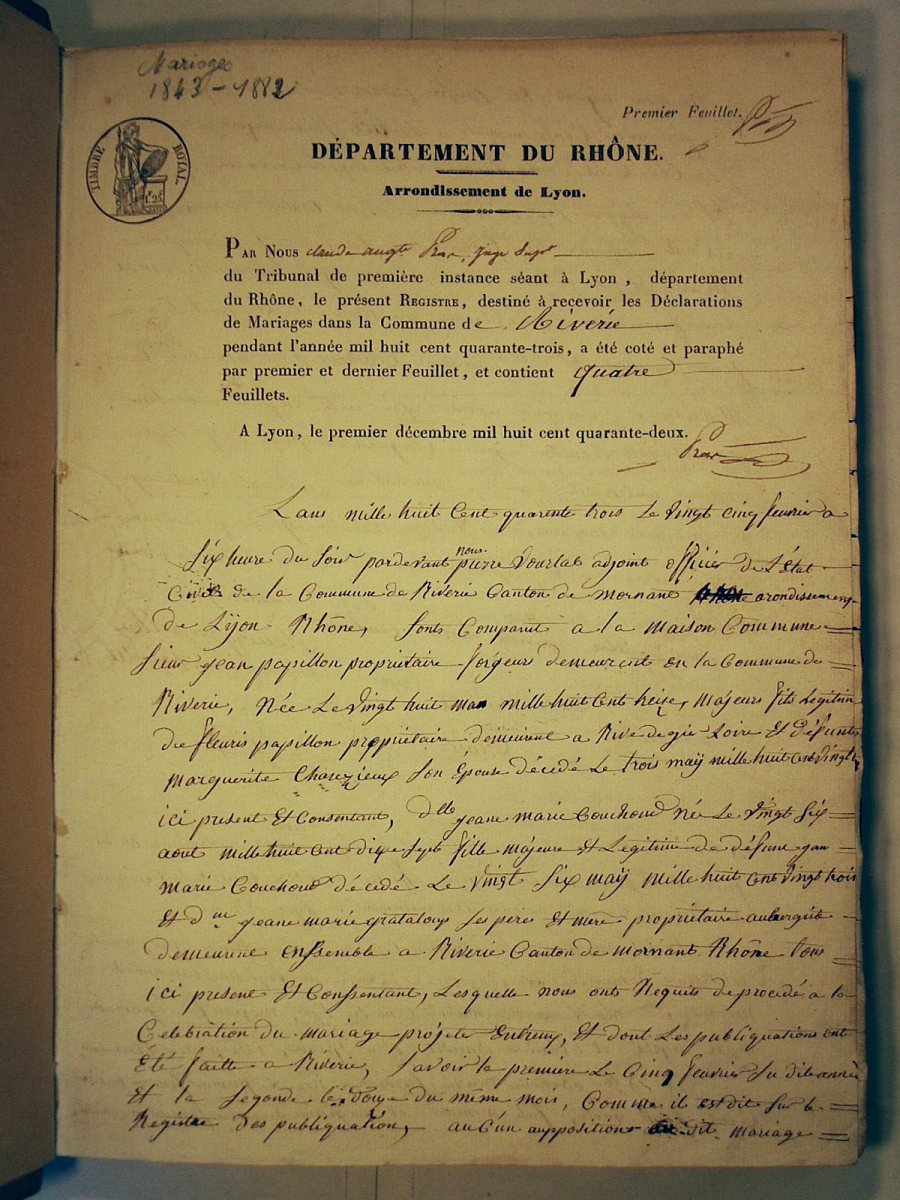 Mariages
1843-1882
Premier Feuillet.
TIMBRE ROYAL
1F 25C
DÉPARTEMENT DU RHÔNE.
Arrondissement de Lyon.
PAR NOUS claude augte
du Tribunal de première instance séant à Lyon, département
du Rhône, le présent REGISTRE, destiné à recevoir les Déclarations
de Mariages dans la Commune de Riverie
pendant l'année mil huit cent quarante-trois, a été coté et paraphé
par premier et dernier Feuillet, et contient quatre
Feuillets.
A Lyon, le premier décembre mil huit cent quarante-deux.
Lans mille huit Cent quarente trois Le vingt cinq fevrier a
Six heure du Soir pardevant nous pierre Vourlat adjoint officier de L'Etat
Civil de la Commune de Riverie Canton de Mornant arondissement
de Lÿon Rhône, Sonts Comparut a la Maison Commune
Sieur jean papillon propriétaire forgeurs demeurant en la Commune de
Riverie, Née Le vingt huit mille huit Cent Seize, Majeurs fils Legitim
du fleuris papillon propriétaire demeurent a Rive de gie Loire Et défunte
Marguerite Son Epouse décédé Le trois maÿ mille huit Cent vingt
ici present Et Consentant, Dlle jeane marie Couchoud Né Le vingt Six
aout mille huit Cent dixe Sept fille majeure Et Legitime de défunt jean
Marie Couchoud décédé Le vingt Six maÿ mille huit Cent vingt trois
Et dme jeane marie grataloup Ses père Et mère propriétaire aubergiste
demeurene enssemble a Riverie Canton de Mornant Rhône tous
ici present Et Conssentant, Lesquelle nous ont Requits de procédé a la
Celebration du mariage projete Entreux, Et dont Les publiquations ont
Eté faitte a Riverie, Savoir la première Le Cinq fevrier Su dite année
Et la Segonde le douze du même mois, Comme il est dit Sur le
Registre des publiquation, aucun auppositions dit mariage